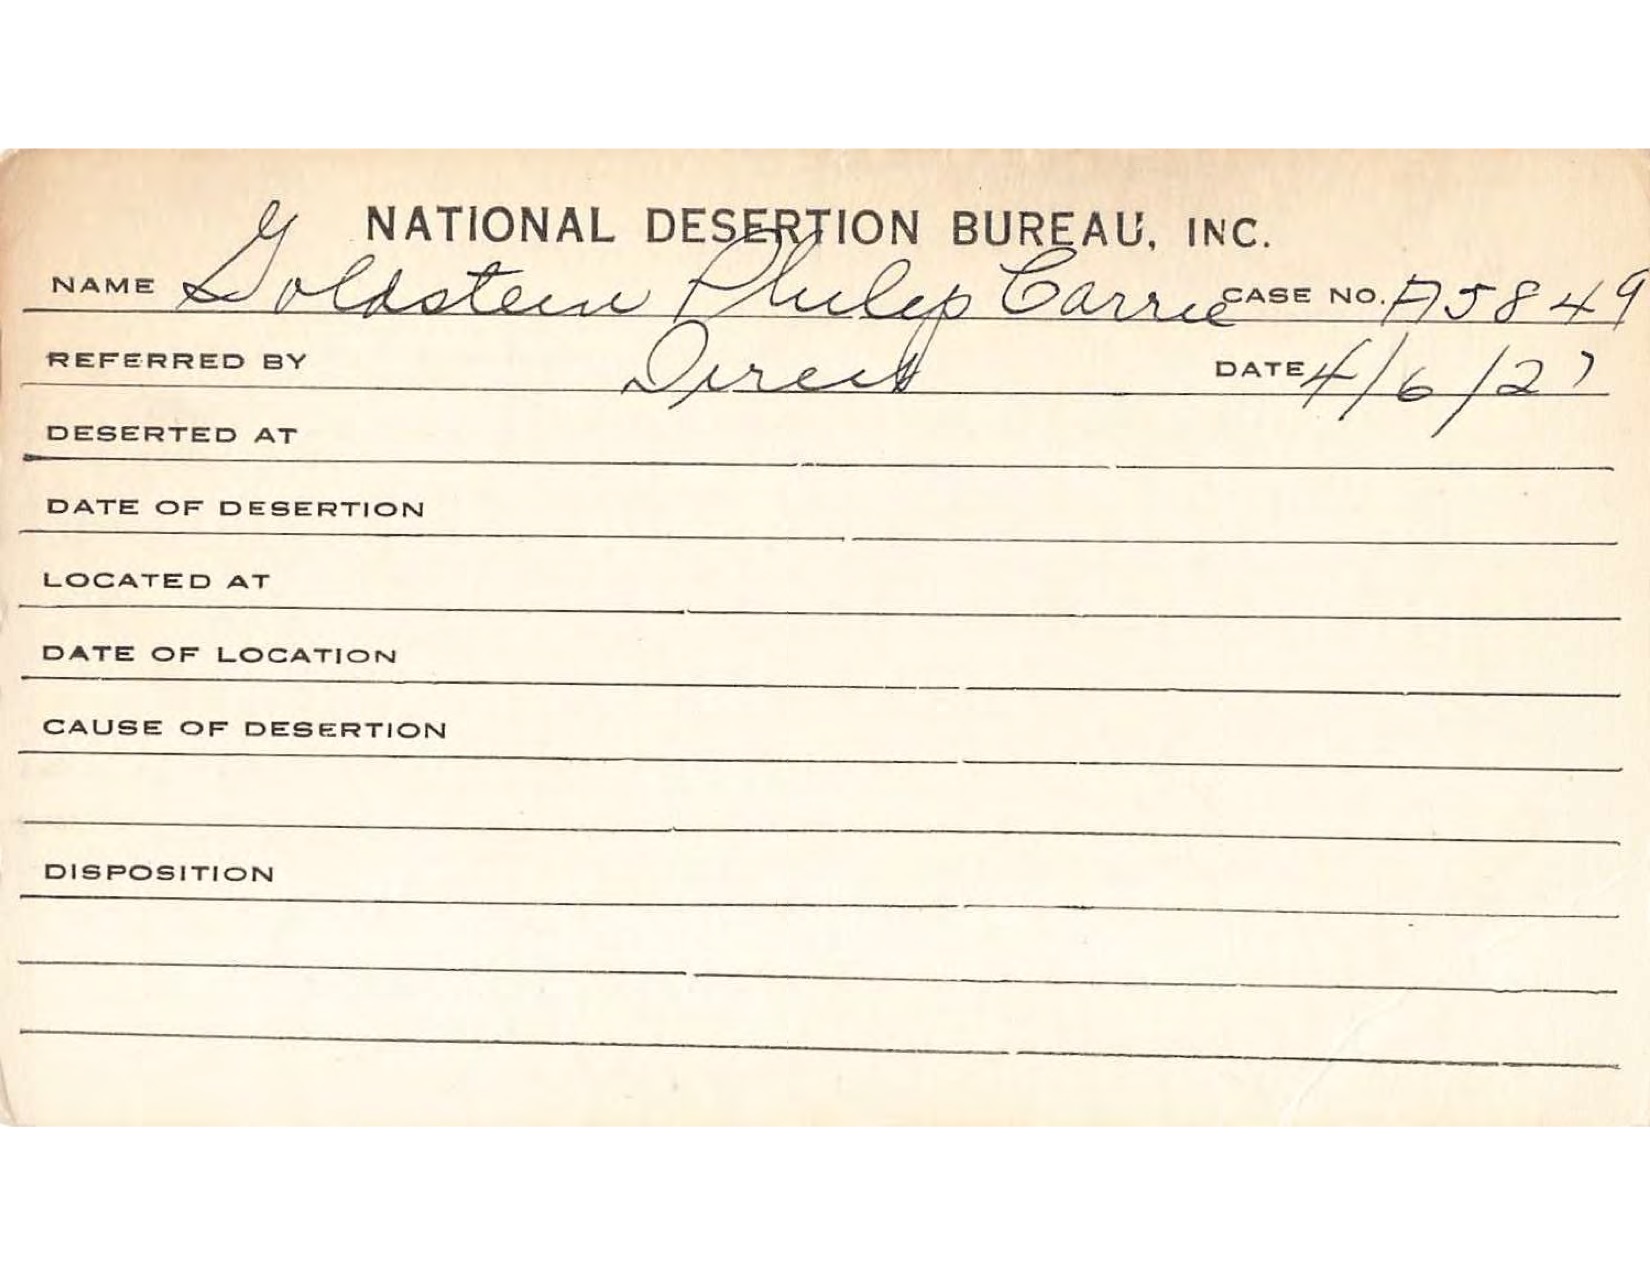 NATIONAL DESERTION BUREAU, INC.
NAME Goldstein Philip Carrie CASE NO. A5849
REFERRED BY Direct DATE 4/6/27
DESERTED AT
DATE OF DESERTION
LOCATED AT
DATE OF LOCATION
CAUSE OF DESERTION
DISPOSITION